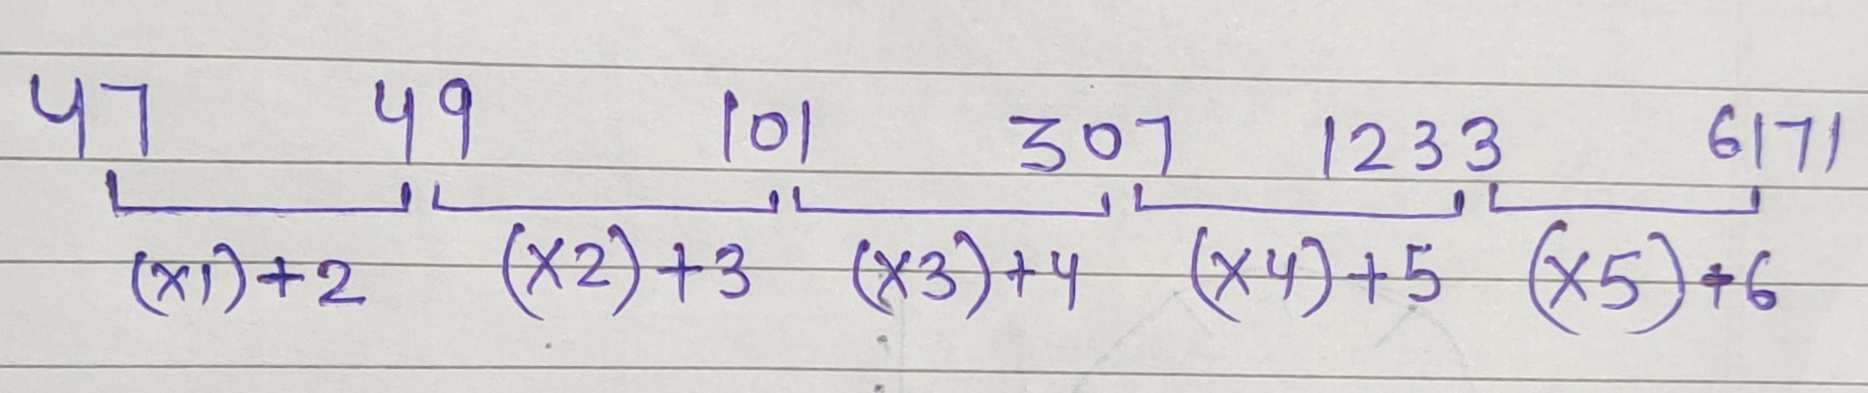 47 49 101 307 1233 6171
(x1)+2 (x2)+3 (x3)+4 (x4)+5 (x5)+6